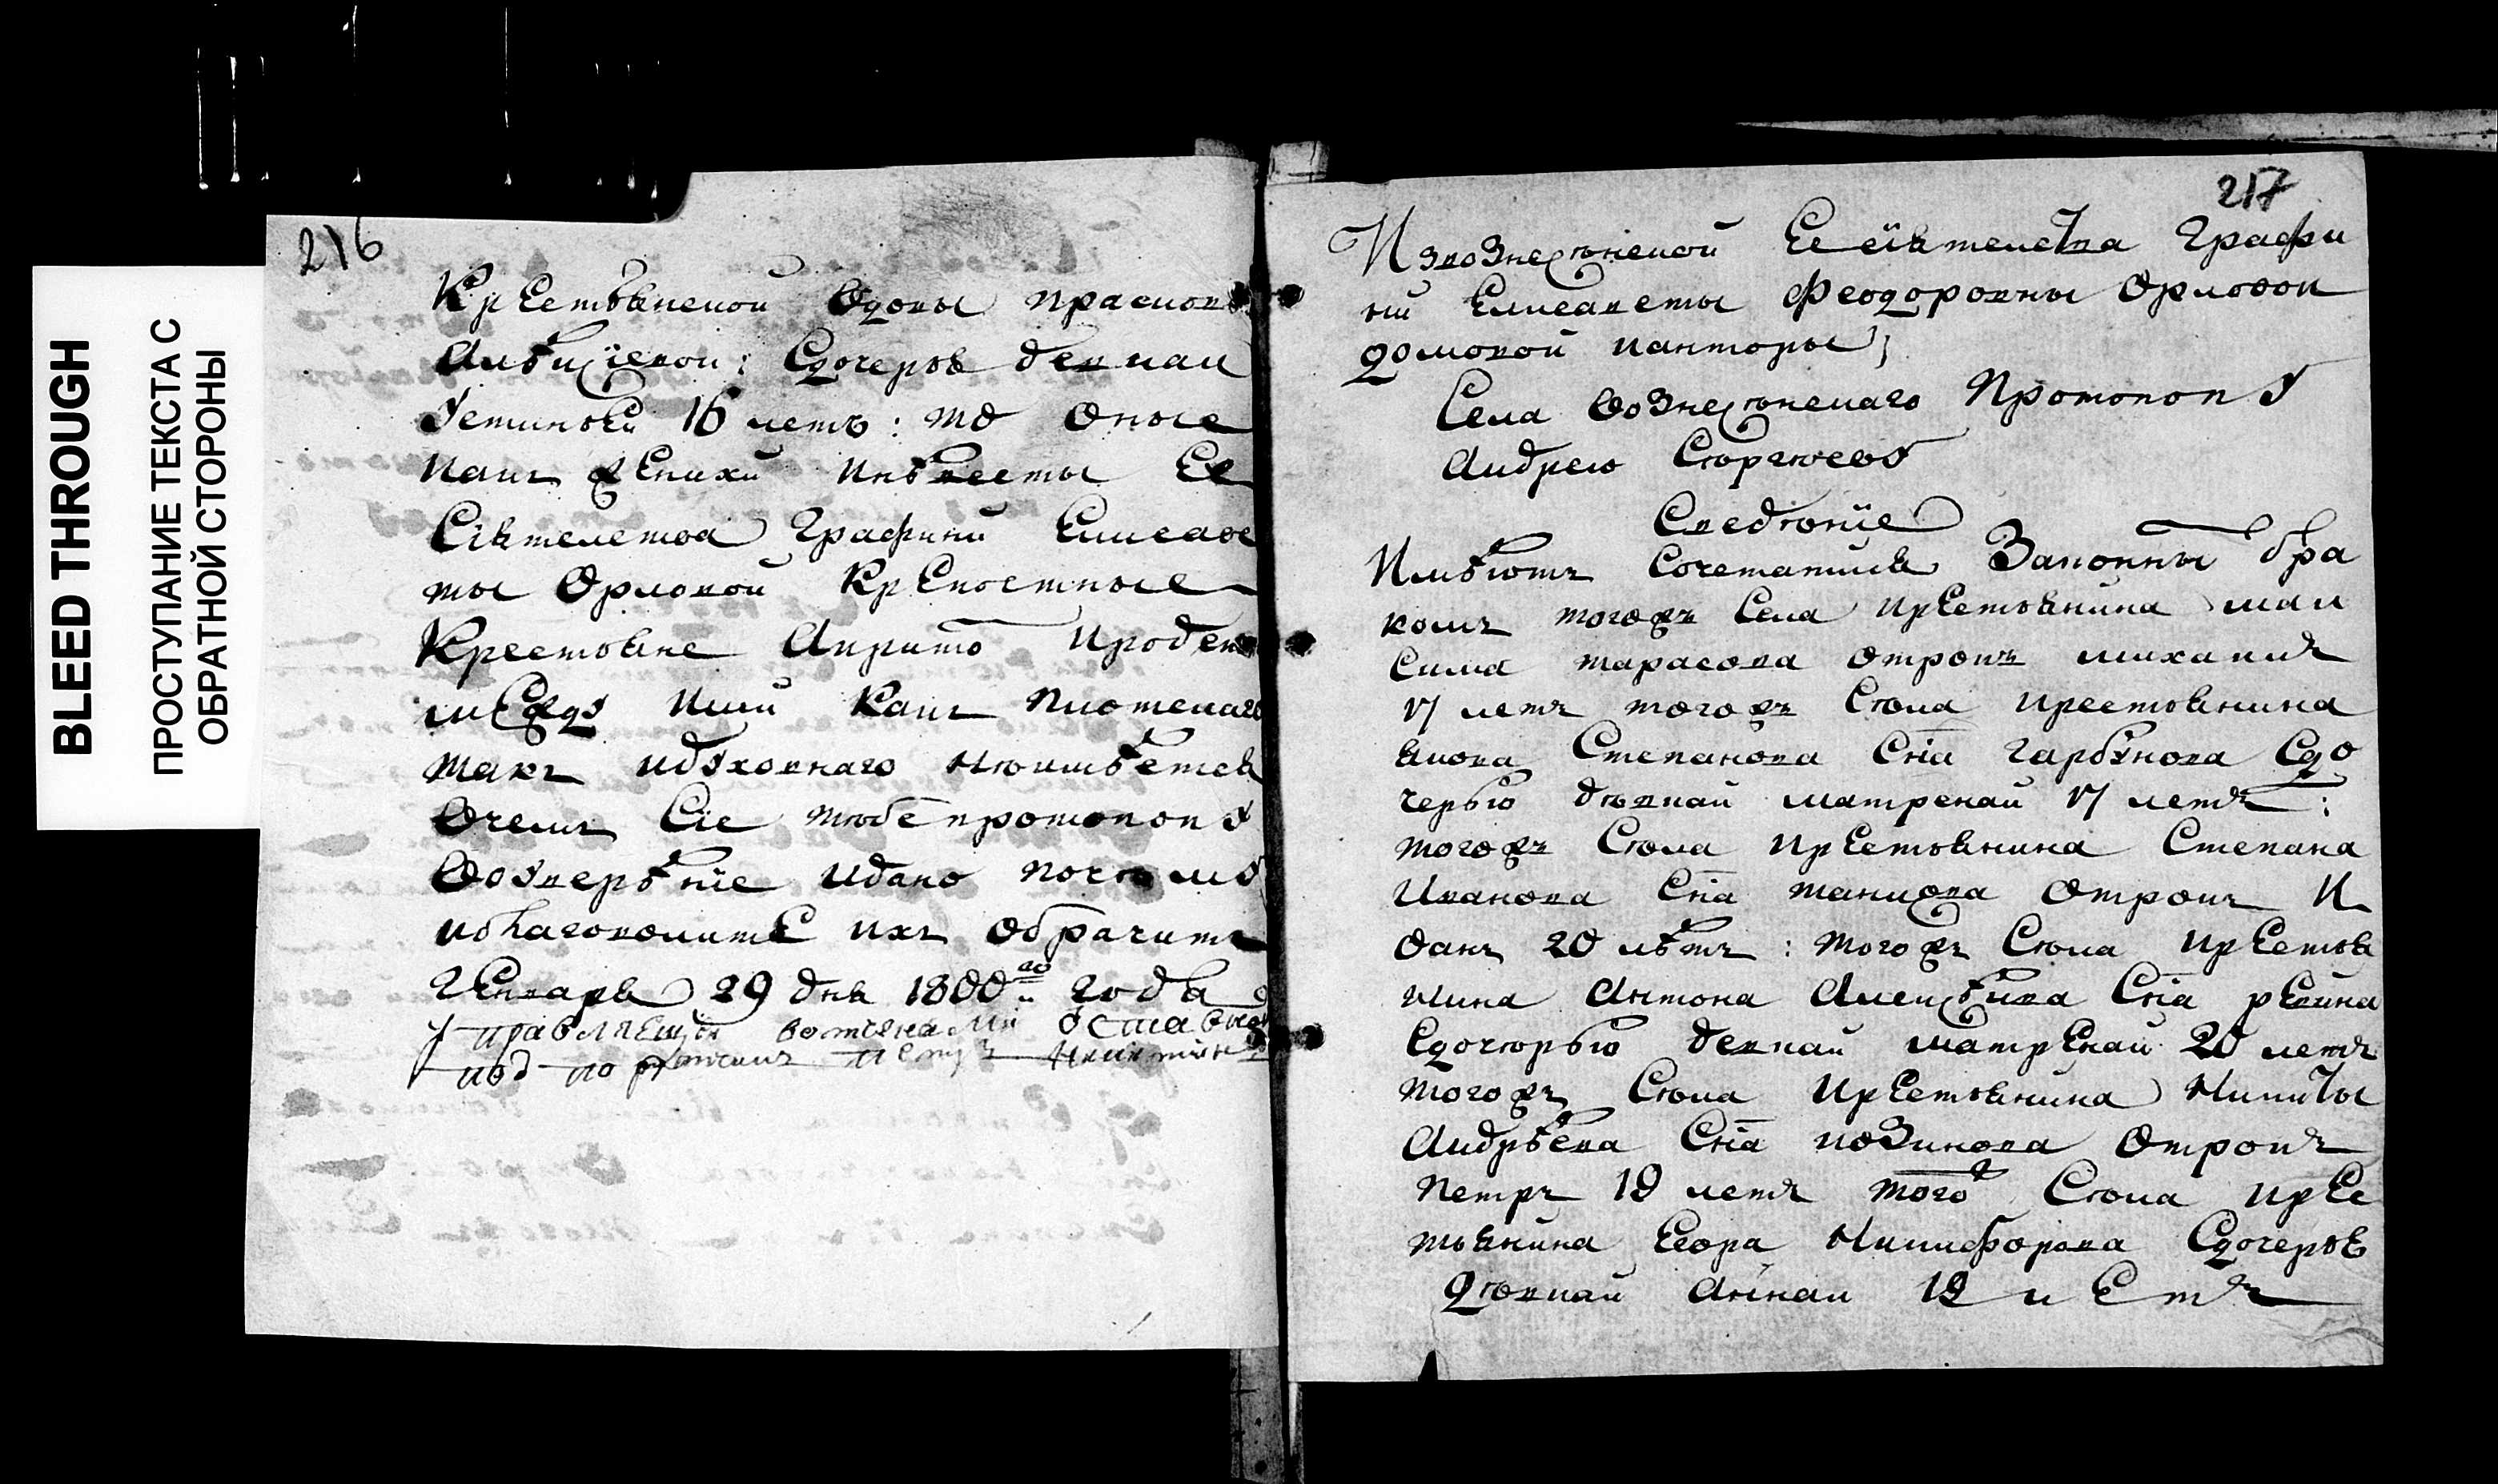 BLEED THROUGH
ПРОСТУПАНИЕ ТЕКСТА С
ОБРАТНОЙ СТОРОНЫ
216
крестьянской вдовы прасков
Сдочерью девкаи
устиньеи 16 летъ: то оные
какъ женихи иневесты Ее
Сіятелства Графини Елисаве
ты Орловой крепостные
крестьяне Априто Сроден
между ими какъ плотскаго
такъ идуховнаго неимѣетса
Очемъ Сіе тебе протопопу
воуверѣніе идано почему
иблаговолите ихъ обрачить
Генваря 29 дня 1800го года
управляещи вотчена ми
217
Извознесенской Ее сіятелства Графи
ни Елисаветы Феодоровны Орловои
домовой канторы;
Села вознесенскаго Протопопу
Андрею Сергееву
Сведение
Имѣютъ Сочетатися Законны бра
комъ тогожъ Села крестьянина мак
сима тарасова отрокъ михаила
17 летъ тогожъ Села крестьянина
якова Степанова Сна гарбунова Сдо
черью девкаи матренаи 17 летъ:
тогожъ Села крестьянина Степана
Иванова Сна отрокъ И
ванъ 20 лѣтъ: тогожъ Села крестья
нина Антона Алексѣива Сна
Сдочерью девкаи матренаи 20 летъ
тогожъ Села крестьянина Никиты
Андрѣева Сна козинова отрокъ
петръ 19 летъ тогож Села крес
тьянина Егора Никифорова Сдочерью
девкаи Аннаи 19 летъ